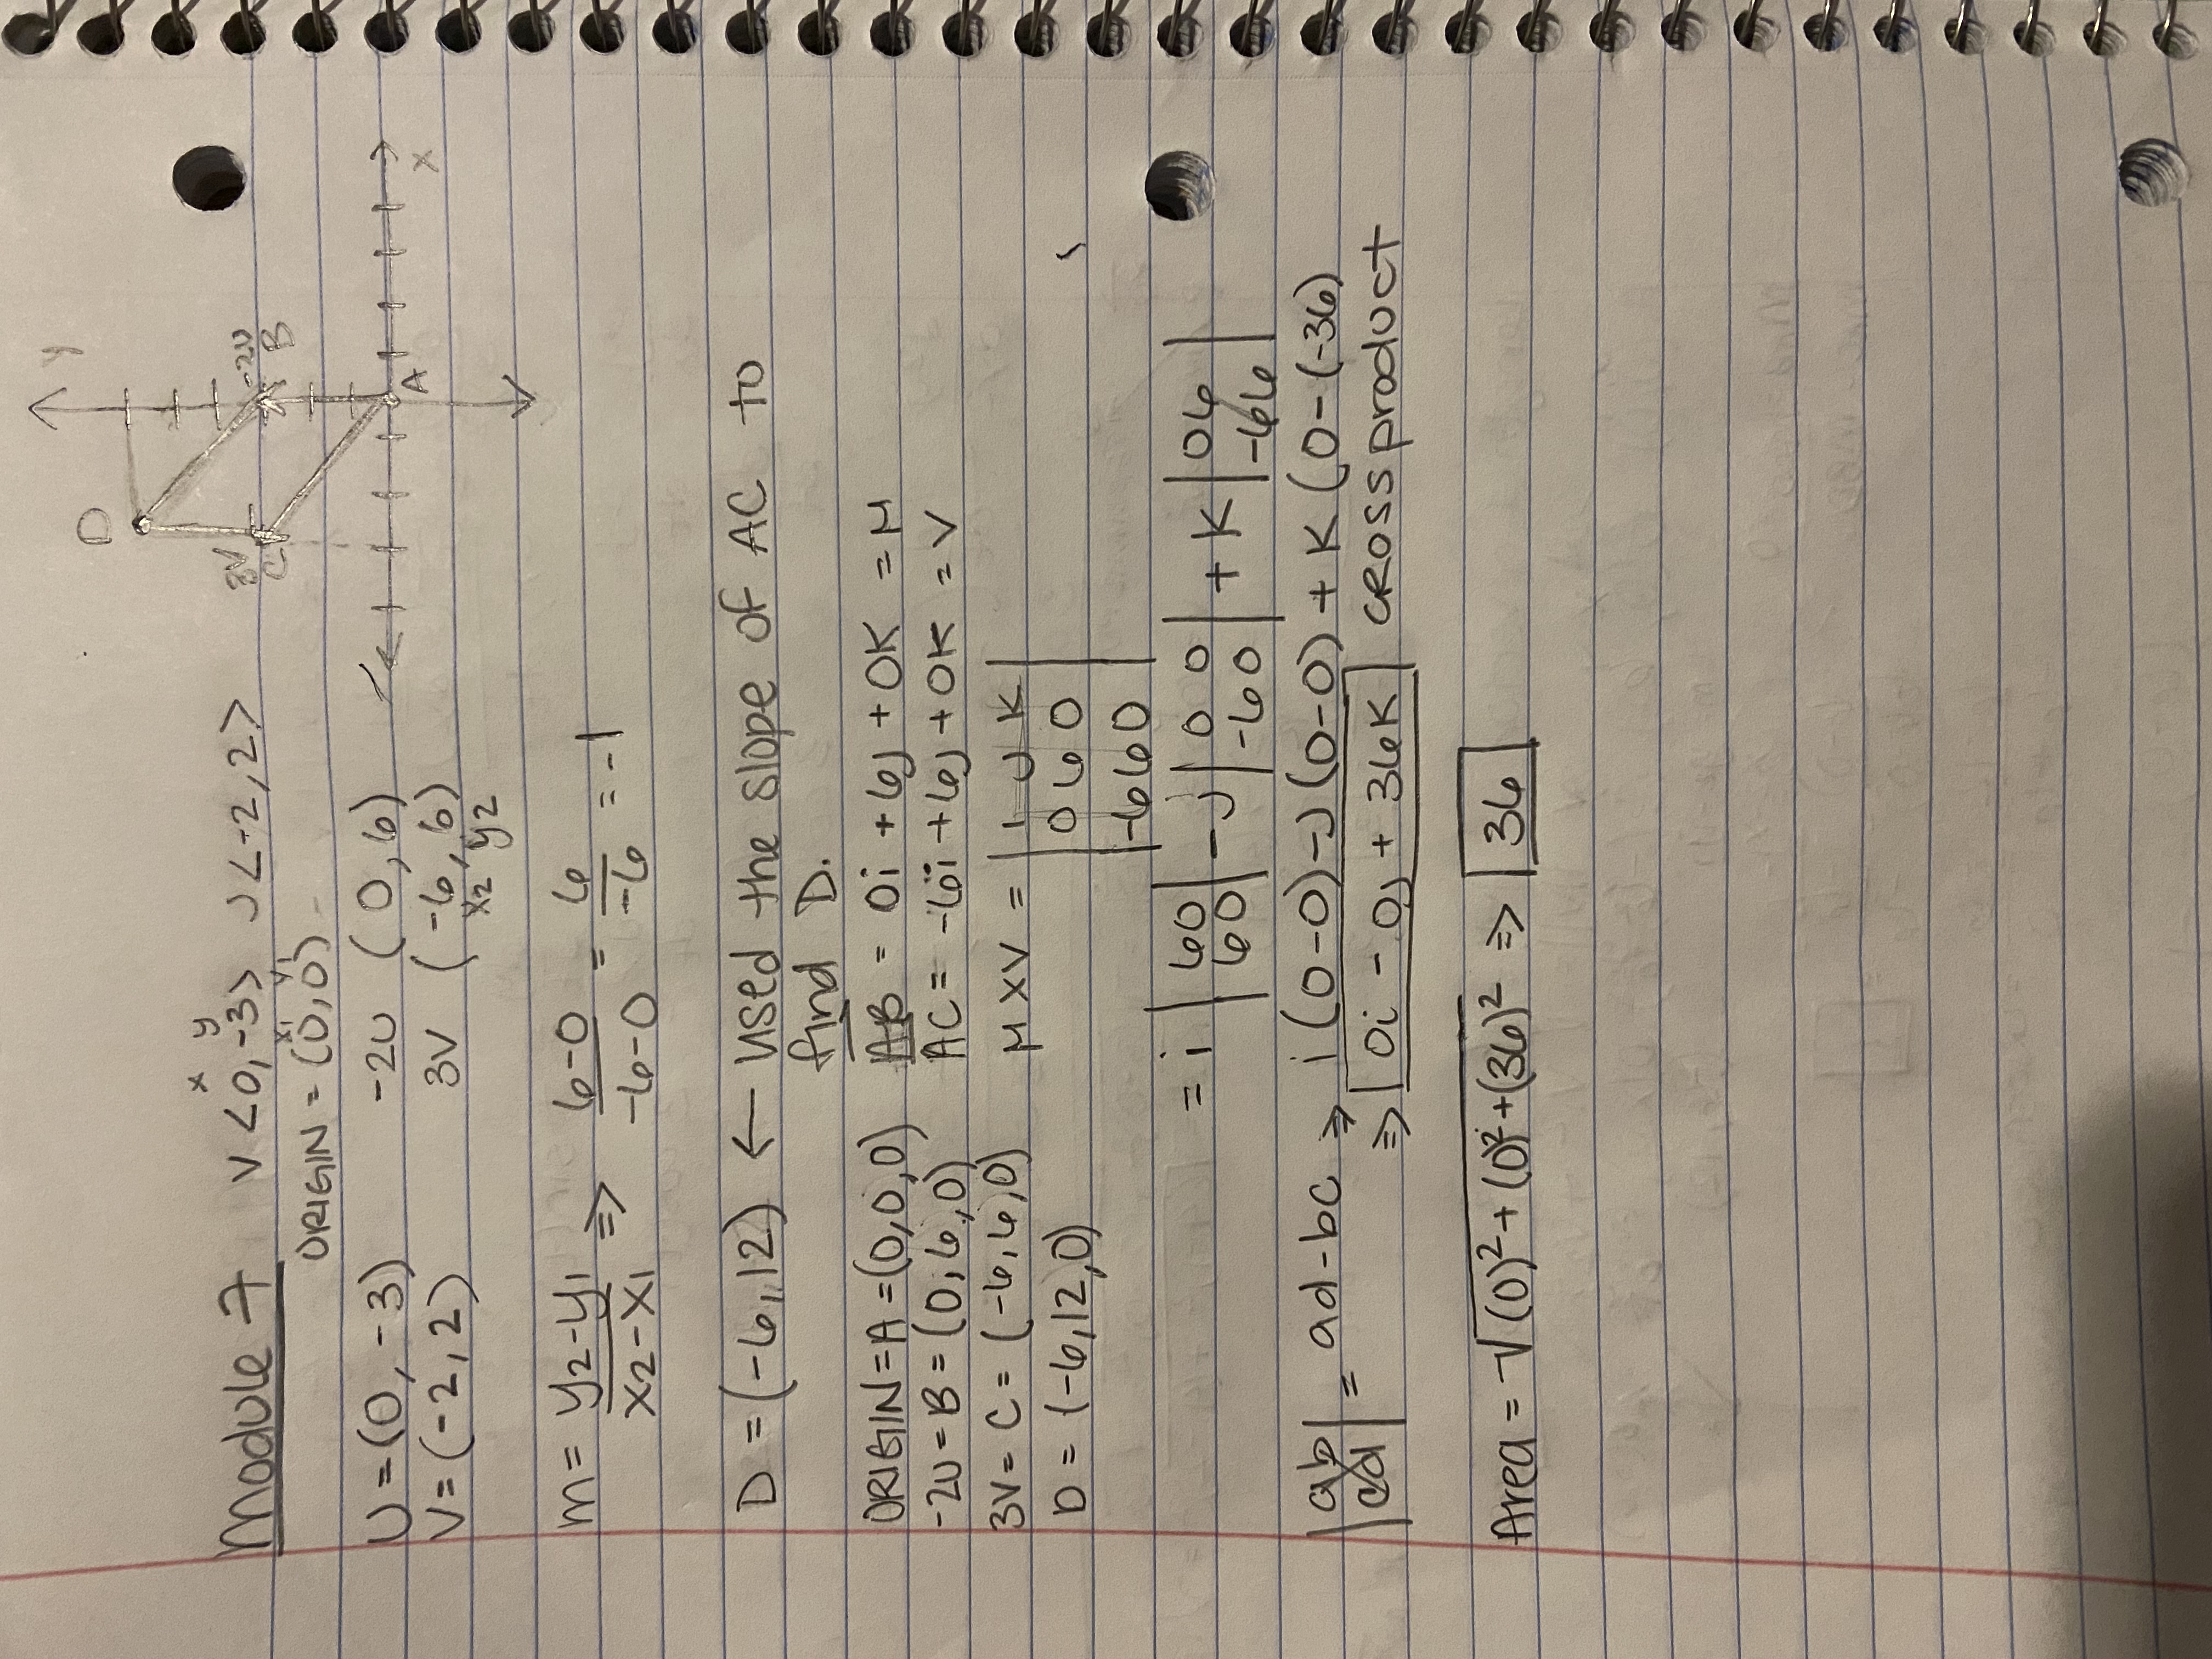 Module 7 V <0,-3> U <-2,2>
x y
ORIGIN = (0,0)
x1 y1
U = (0,-3) -2U (0,6)
V = (-2,2) 3V (-6,6)
x2 y2
y
D
3V -2U
C B
A
x
m = y2-y1 / x2-x1 => 6-0 / -6-0 = 6 / -6 = -1
D = (-6,12) ← used the slope of AC to
find D.
ORIGIN = A = (0,0,0) AB = 0i + 6j + 0K = μ
-2U = B = (0,6,0) AC = -6i + 6j + 0K = V
3V = C = (-6,6,0) μ x V = | i J K |
D = (-6,12,0) | 0 6 0 |
| -6 6 0 |
= i | 6 0 | - J | 0 0 | + K | 0 6 |
| 6 0 | | -6 0 | | -6 6 |
| a b | = ad-bc => i (0-0) - J (0-0) + K (0-(-36)
| c d | => 0i - 0j + 36K cross product
Area = √(0)² + (0)² + (36)² => 36